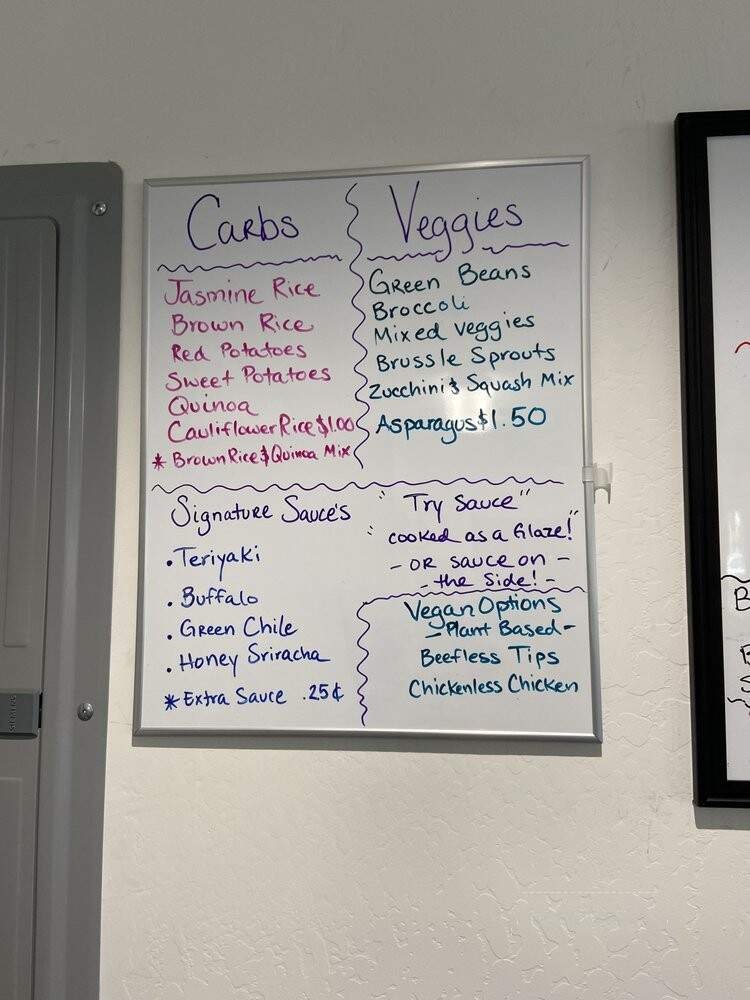 Carbs
Jasmine Rice
Brown Rice
Red Potatoes
Sweet Potatoes
Quinoa
Cauliflower Rice $1.00
* Brown Rice & Quinoa Mix
Veggies
Green Beans
Broccoli
Mixed veggies
Brussle Sprouts
Zucchini & Squash Mix
Asparagus $1.50
Signature Sauce's
• Teriyaki
• Buffalo
• Green Chile
• Honey Sriracha
* Extra Sauce .25¢
"Try Sauce"
"cooked as a Glaze!"
- OR sauce on -
- the Side! -
Vegan Options
- Plant Based -
Beefless Tips
Chickenless Chicken